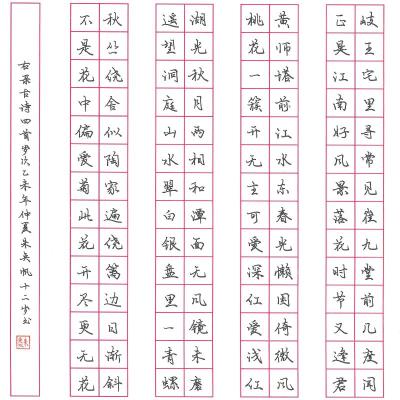 岐王宅里寻常见崔九堂前几度闻
正是江南好风景落花时节又逢君
黄师塔前江水东春光懒困倚微风
桃花一簇开无主可爱深红爱浅红
湖光秋月两相和潭面无风镜未磨
遥望洞庭山水翠白银盘里一青螺
秋丛绕舍似陶家遍绕篱边日渐斜
不是花中偏爱菊此花开尽更无花
右录古诗四首岁次乙未年仲夏朱英帆十二岁书